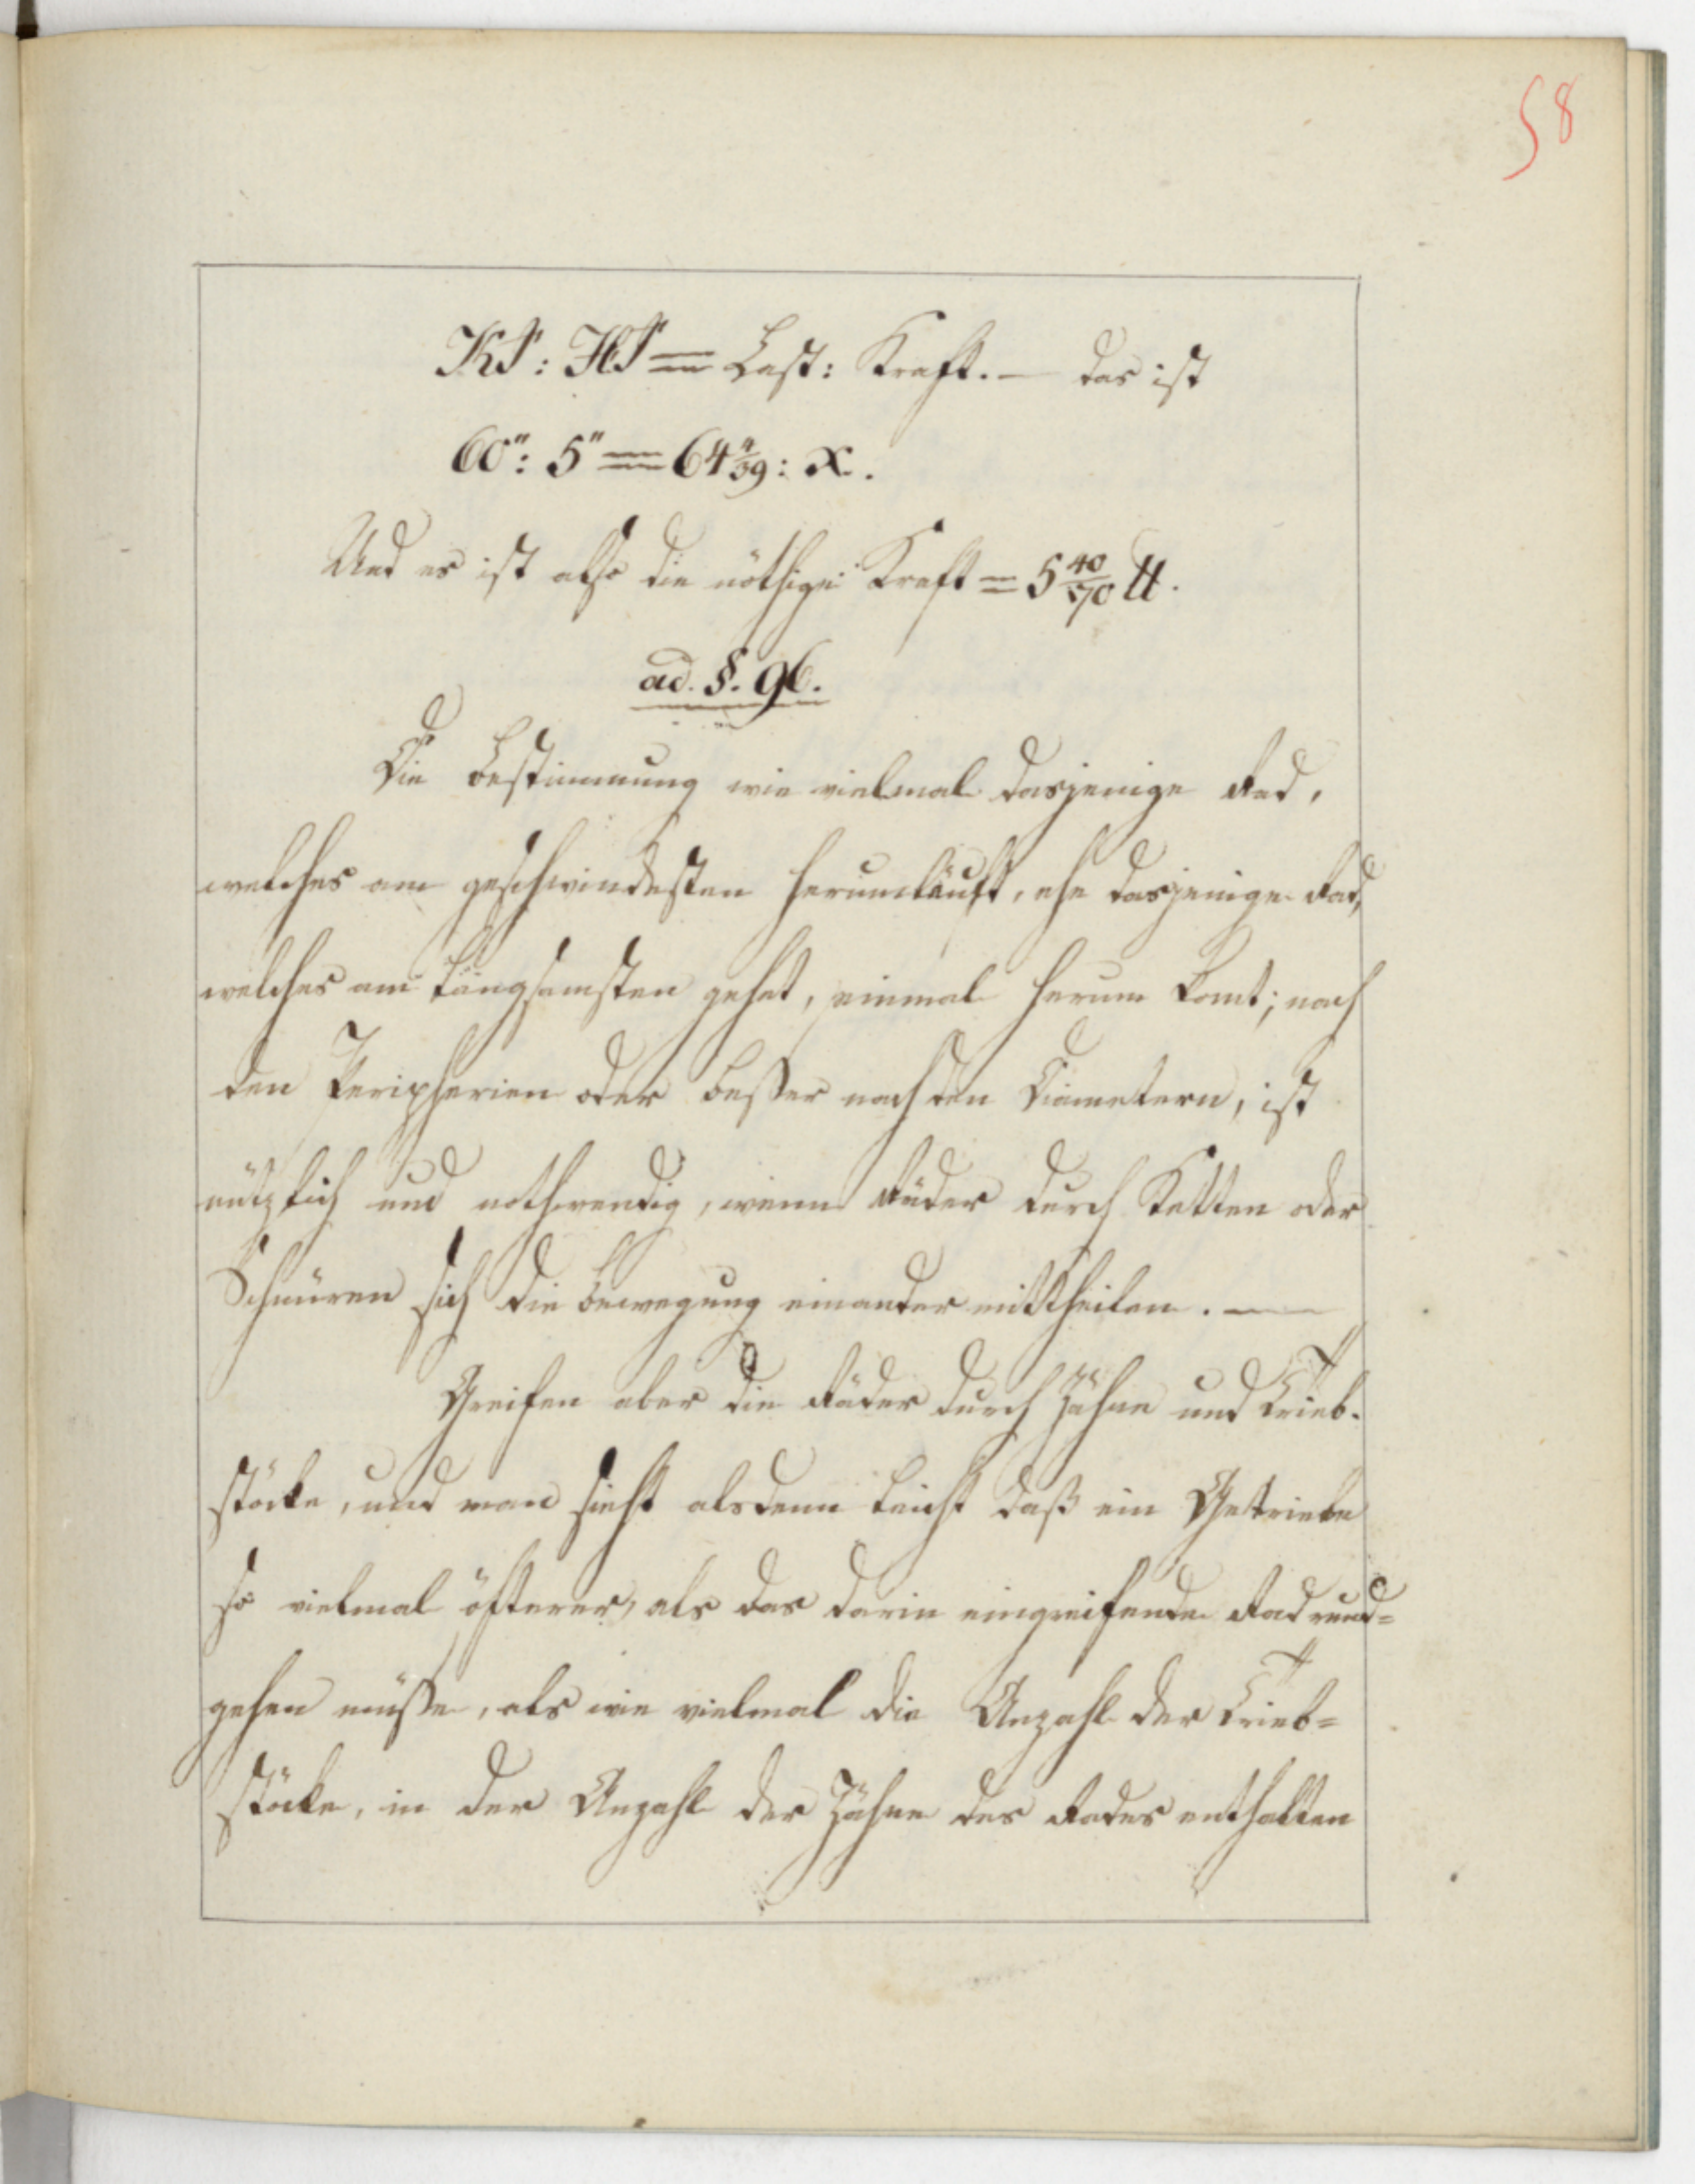 58
KS: HS = Last: Kraft. — das ist
60": 5" = 64 4/39: x.
Und es ist also die nöthige Kraft = 5 40/70 ℔.
ad. §. 96.
Die Bestimmung wie vielmal dasjenige Rad,
welches am geschwindesten herumläuft, ehe dasjenige Rad,
welches am längsamsten gehet, einmal herum komt; nach
den Peripherien oder beßer nach den Diametern, ist
nützlich und nothwendig, wenn Räder durch Ketten oder
Schnüren sich die Bewegung einander mittheilen. —
Greifen aber die Räder durch Zähne und Trieb-
stöcke, und man sieht alsdenn leicht daß ein Getriebe
so vielmal öfterer, als das darin eingreifende Rad rund=
gehen müße, als wie vielmal die Anzahl der Trieb=
stöcke, in der Anzahl der Zähne des Rades enthalten